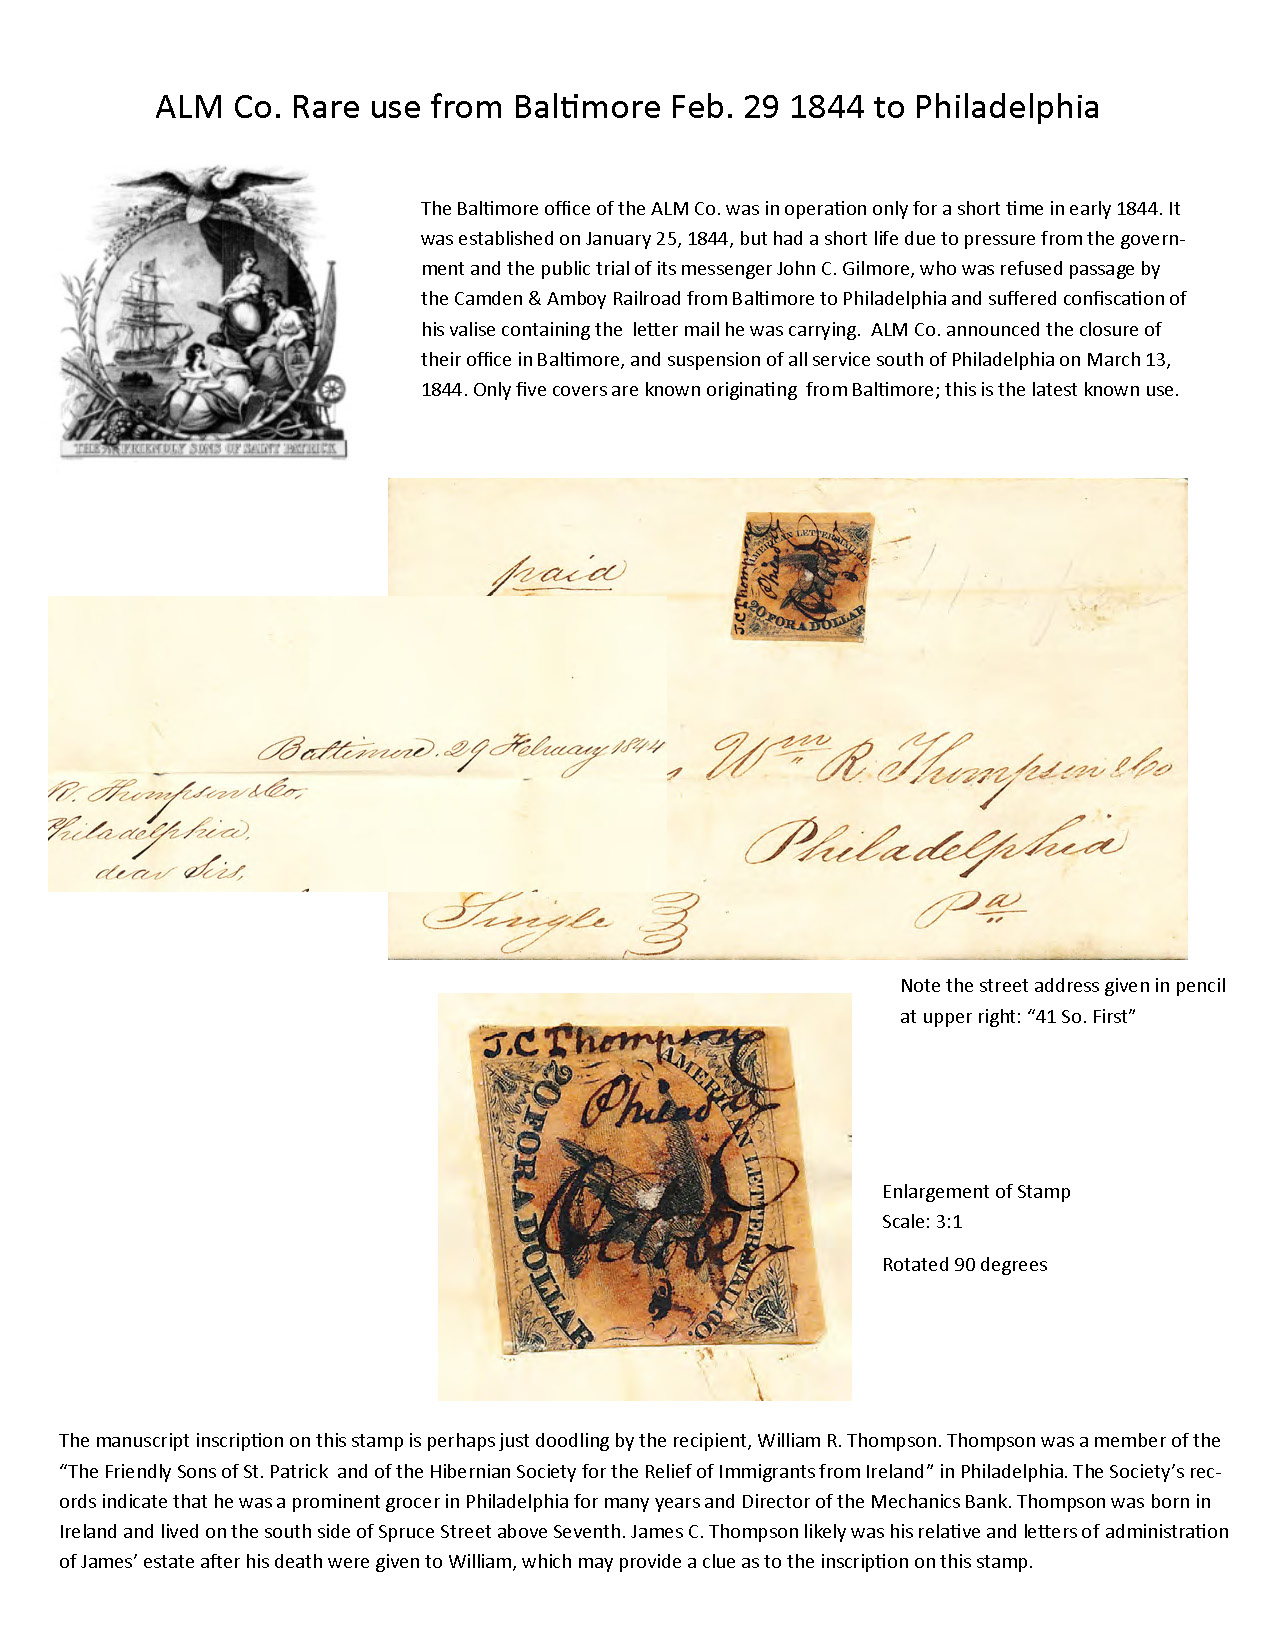 ALM Co. Rare use from Baltimore Feb. 29 1844 to Philadelphia
The Baltimore office of the ALM Co. was in operation only for a short time in early 1844. It
was established on January 25, 1844, but had a short life due to pressure from the govern-
ment and the public trial of its messenger John C. Gilmore, who was refused passage by
the Camden & Amboy Railroad from Baltimore to Philadelphia and suffered confiscation of
his valise containing the letter mail he was carrying. ALM Co. announced the closure of
their office in Baltimore, and suspension of all service south of Philadelphia on March 13,
1844. Only five covers are known originating from Baltimore; this is the latest known use.
THE FRIENDLY SONS OF SAINT PATRICK
paid
J.C Thompson
AMERICAN LETTER MAIL CO.
Philad
20 FOR A DOLLAR
Baltimore. 29 February 1844
R. Thompson & Co,
Philadelphia,
dear Sirs,
Wm R. Thompson & Co
Philadelphia
Pa
Single
Note the street address given in pencil
at upper right: “41 So. First”
J.C Thompson
AMERICAN LETTER MAIL CO.
20 FOR A DOLLAR
Philad
Enlargement of Stamp
Scale: 3:1
Rotated 90 degrees
The manuscript inscription on this stamp is perhaps just doodling by the recipient, William R. Thompson. Thompson was a member of the
“The Friendly Sons of St. Patrick and of the Hibernian Society for the Relief of Immigrants from Ireland” in Philadelphia. The Society’s rec-
ords indicate that he was a prominent grocer in Philadelphia for many years and Director of the Mechanics Bank. Thompson was born in
Ireland and lived on the south side of Spruce Street above Seventh. James C. Thompson likely was his relative and letters of administration
of James’ estate after his death were given to William, which may provide a clue as to the inscription on this stamp.